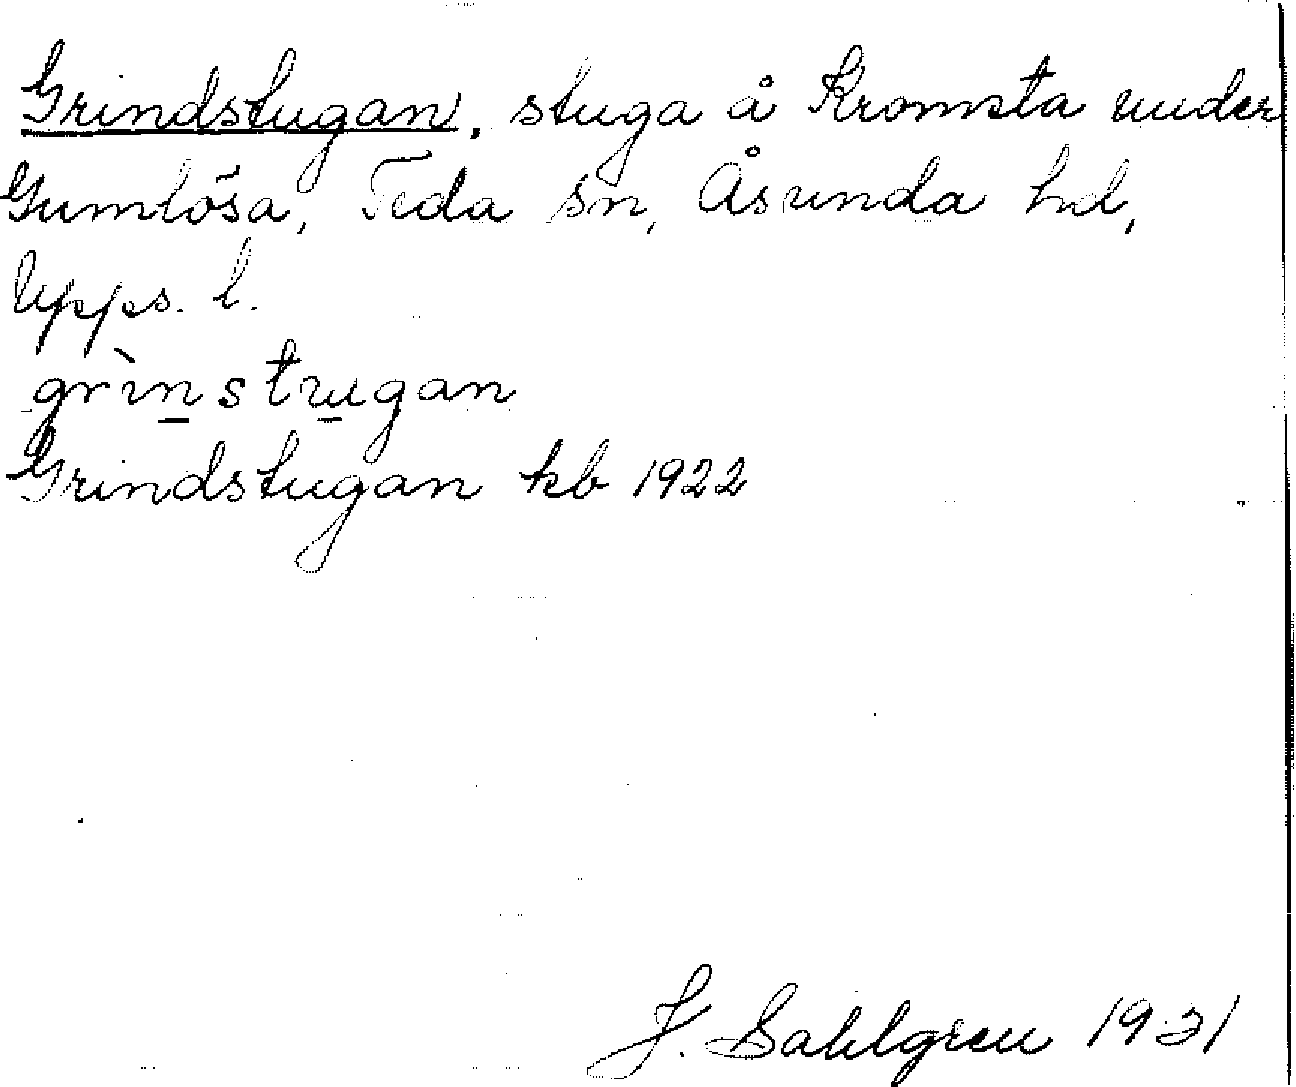 Grindstugan, stuga å Kromsta under
Gumlösa, Teda sn, Åsunda hd,
Upps. l.
grìnstugan
Grindstugan kb 1922
J. Sahlgren 1931